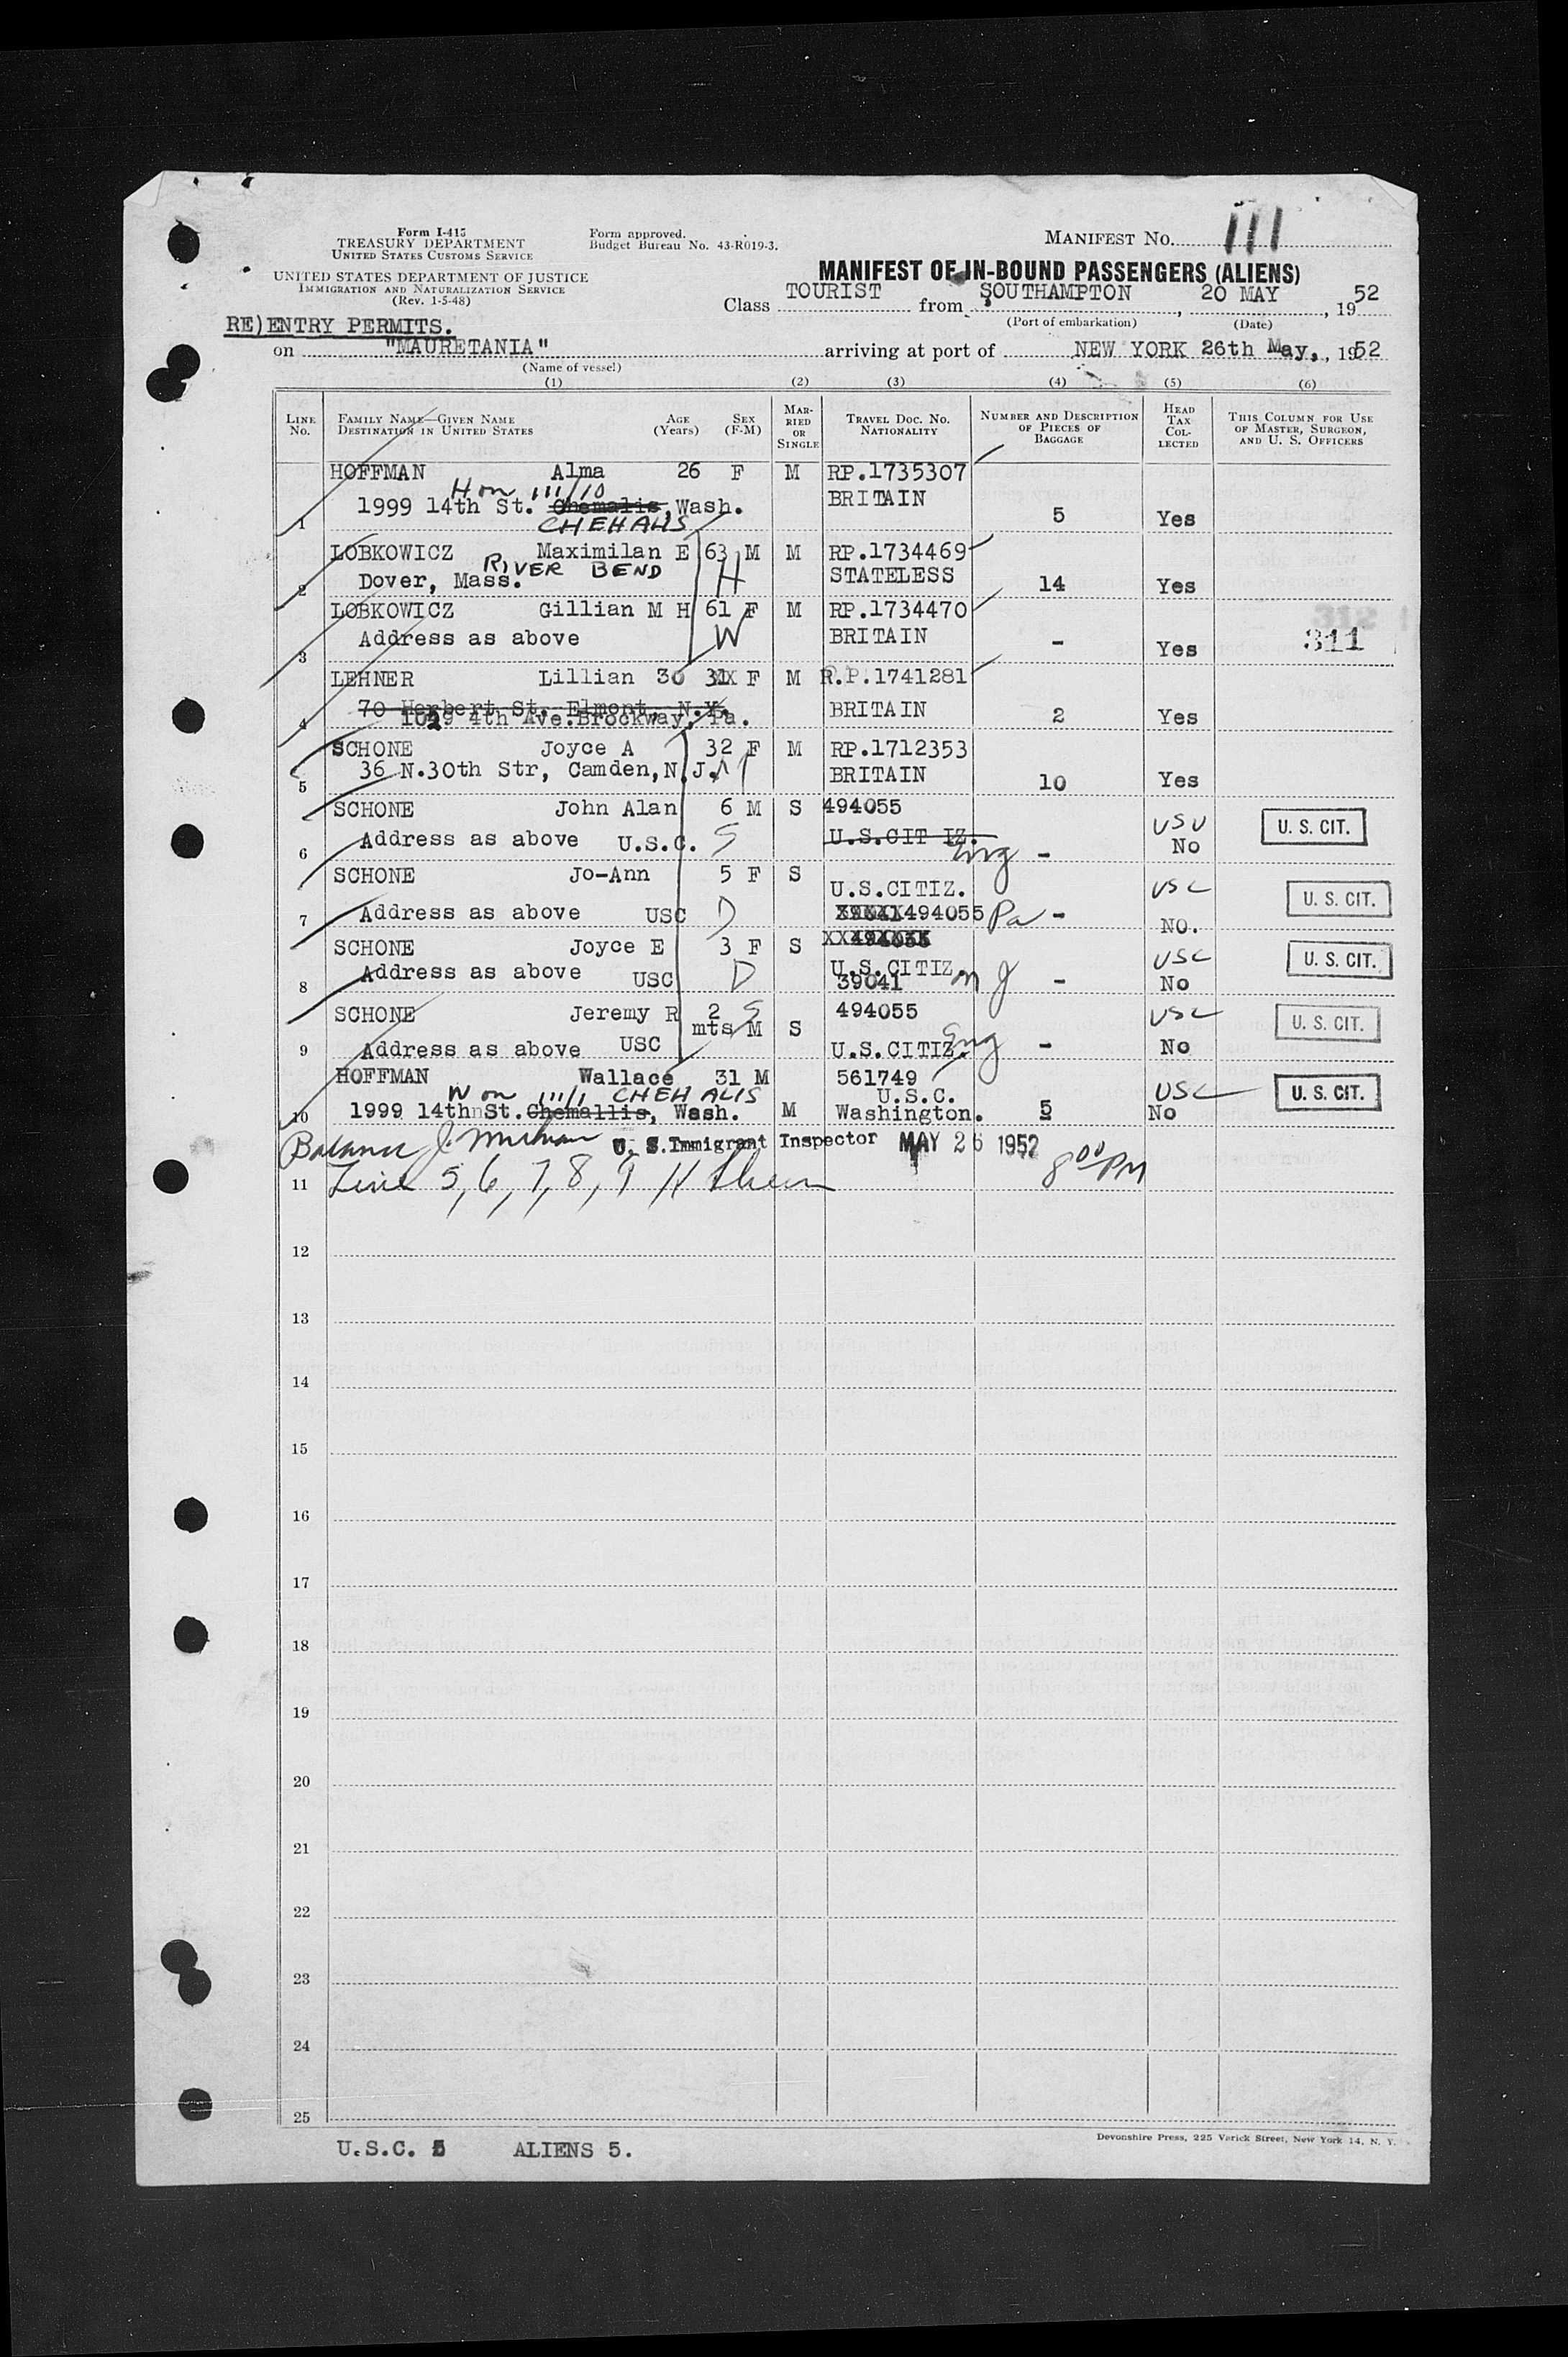 Form I-415
TREASURY DEPARTMENT
UNITED STATES CUSTOMS SERVICE
UNITED STATES DEPARTMENT OF JUSTICE
IMMIGRATION AND NATURALIZATION SERVICE
(Rev. 1-5-48)
Form approved.
Budget Bureau No. 43-R019-3.
MANIFEST NO. 111
MANIFEST OF IN-BOUND PASSENGERS (ALIENS)
Class TOURIST from SOUTHAMPTON, 20 MAY, 1952
(Port of embarkation) (Date)
RE)ENTRY PERMITS.
on "MAURETANIA" arriving at port of NEW YORK 26th May, , 1952
(Name of vessel)
(1) (2) (3) (4) (5) (6)
LINE NO. FAMILY NAME—GIVEN NAME DESTINATION IN UNITED STATES AGE (Years) SEX (F-M) MARRIED OR SINGLE TRAVEL DOC. NO. NATIONALITY NUMBER AND DESCRIPTION OF PIECES OF BAGGAGE HEAD TAX COLLECTED THIS COLUMN FOR USE OF MASTER, SURGEON, AND U. S. OFFICERS
HOFFMAN Alma 26 F M RP.1735307
H on 111/10
1999 14th St. Chemalis, Wash. BRITAIN
1 CHEHALIS 5 Yes
LOBKOWICZ Maximilan E 63 M M RP.1734469
RIVER BEND H
2 Dover, Mass. STATELESS 14 Yes
LOBKOWICZ Gillian M H 61 F M RP.1734470
3 Address as above W BRITAIN - Yes 311
LEHNER Lillian 30 31XX F M R.P.1741281
70 Herbert St. Elmont, N.Y.
4 1029 4th Ave.Brockway, Pa. BRITAIN 2 Yes
SCHONE Joyce A 32 F M RP.1712353
5 36 N.30th Str, Camden,N.J. M BRITAIN 10 Yes
SCHONE John Alan 6 M S 494055
6 Address as above U.S.C. S U.S.CIT IZ. Eng - USC No U. S. CIT.
SCHONE Jo-Ann 5 F S U.S.CITIZ.
7 Address as above USC D 39041 494055 Pa - USC NO. U. S. CIT.
SCHONE Joyce E 3 F S XX494055XX
8 Address as above USC D U.S.CITIZ. 39041 N J - USC No U. S. CIT.
SCHONE Jeremy R 2 mts M S 494055
9 Address as above USC S U.S.CITIZ. Eng - USC No U. S. CIT.
HOFFMAN Wallace 31 M 561749
W on 111/1 CHEHALIS U.S.C.
10 1999 14th St. Chemallis, Wash. M Washington. 5 USC No U. S. CIT.
Balance U. S. Immigrant Inspector MAY 26 1952 8 00 PM
11 Line 5, 6, 7, 8, 9
12
13
14
15
16
17
18
19
20
21
22
23
24
25
U.S.C. 5 ALIENS 5.
Devonshire Press, 225 Varick Street, New York 14, N. Y.